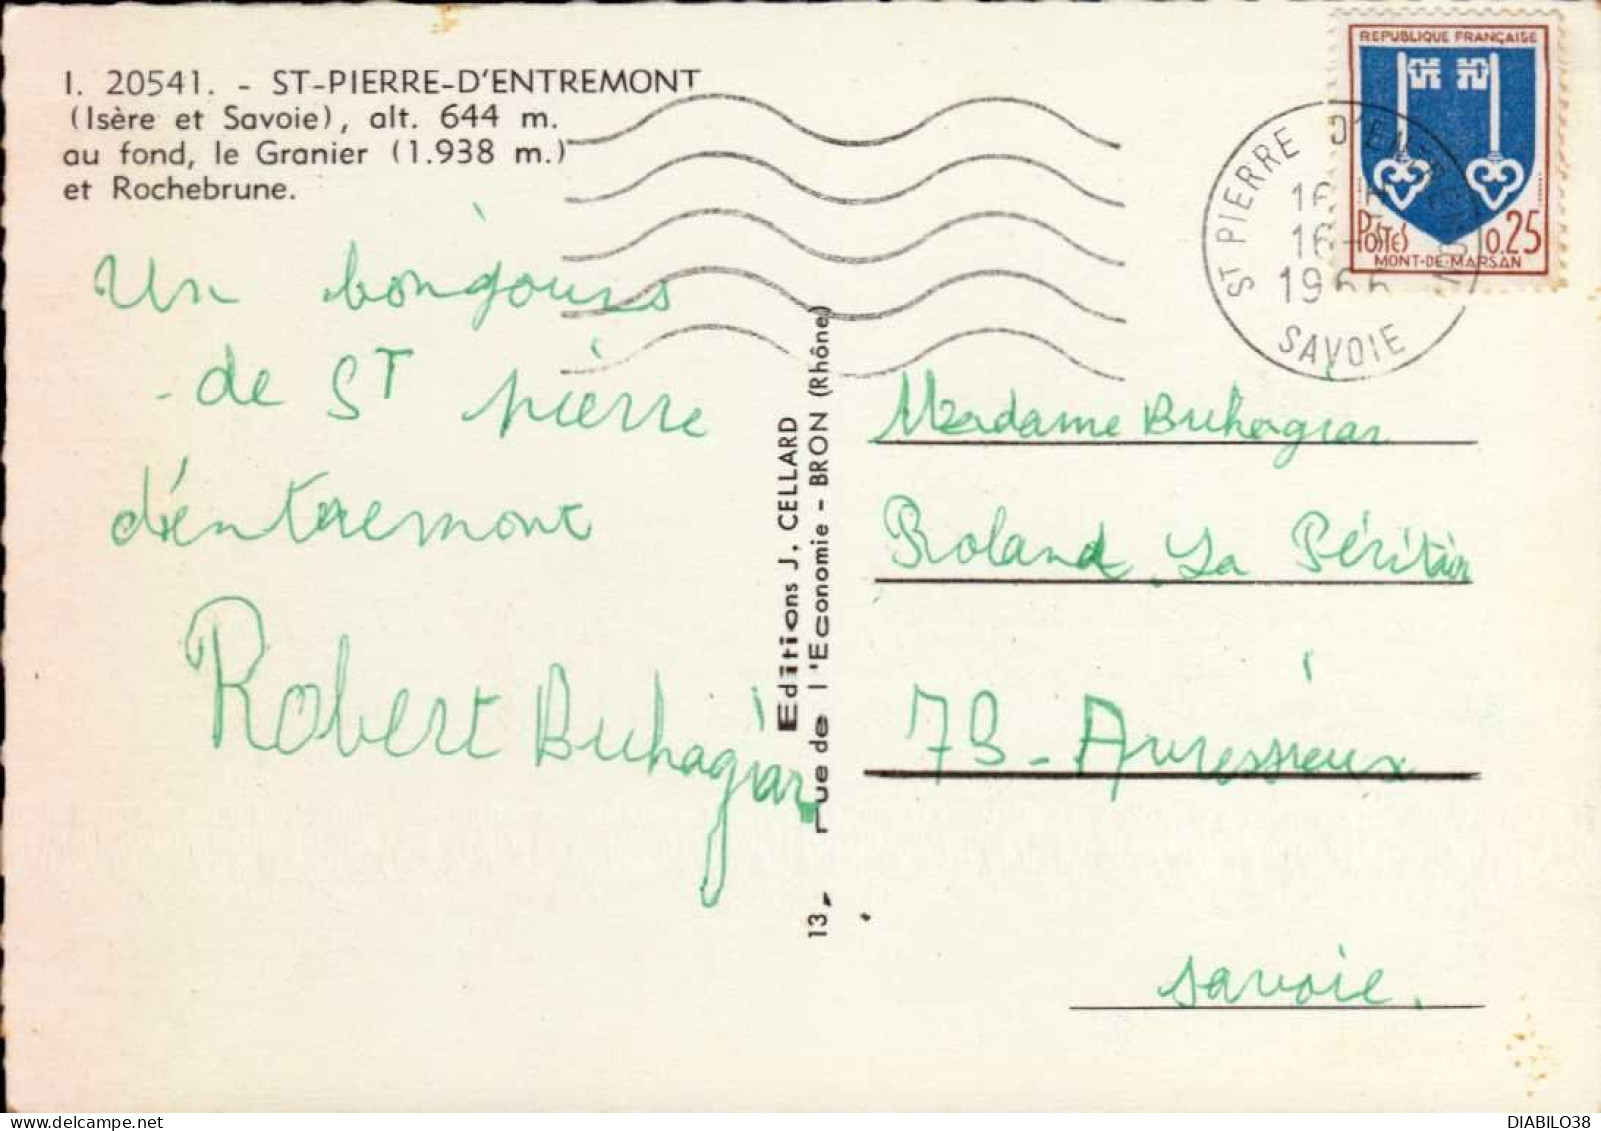 I. 20541. - ST-PIERRE-D'ENTREMONT
(Isère et Savoie), alt. 644 m.
au fond, le Granier (1.938 m.)
et Rochebrune.
REPUBLIQUE FRANÇAISE
POSTES 0.25
MONT-DE-MARSAN
ST PIERRE D'ENTREMONT
16
16
1966
SAVOIE
Un bonjours
de ST pierre
d'entremont
Robert Buhagiar
Editions J. CELLARD
13, rue de l'Economie - BRON (Rhône)
Madame Buhagiar
Roland La
73 - Avressieux
savoie.
DIABILO38